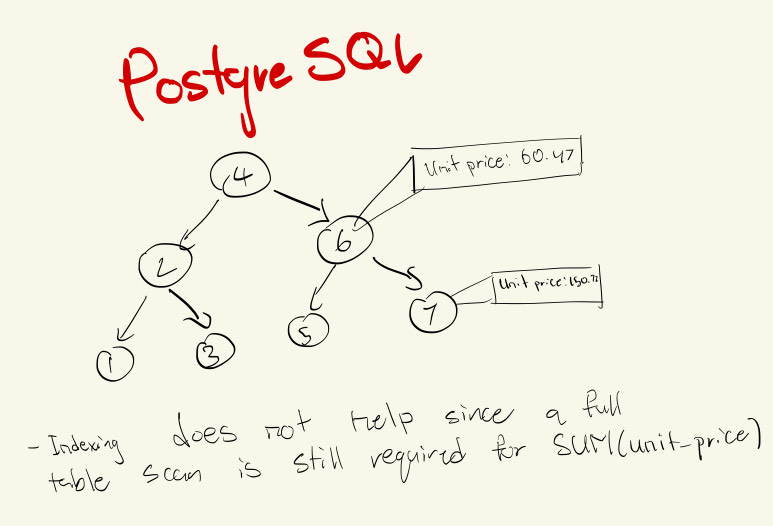 PostgreSQL
4
Unit price: 60.47
6
2
Unit price: 150.72
7
5
3
1
- Indexing does not help since a full
table scan is still required for SUM(unit_price)